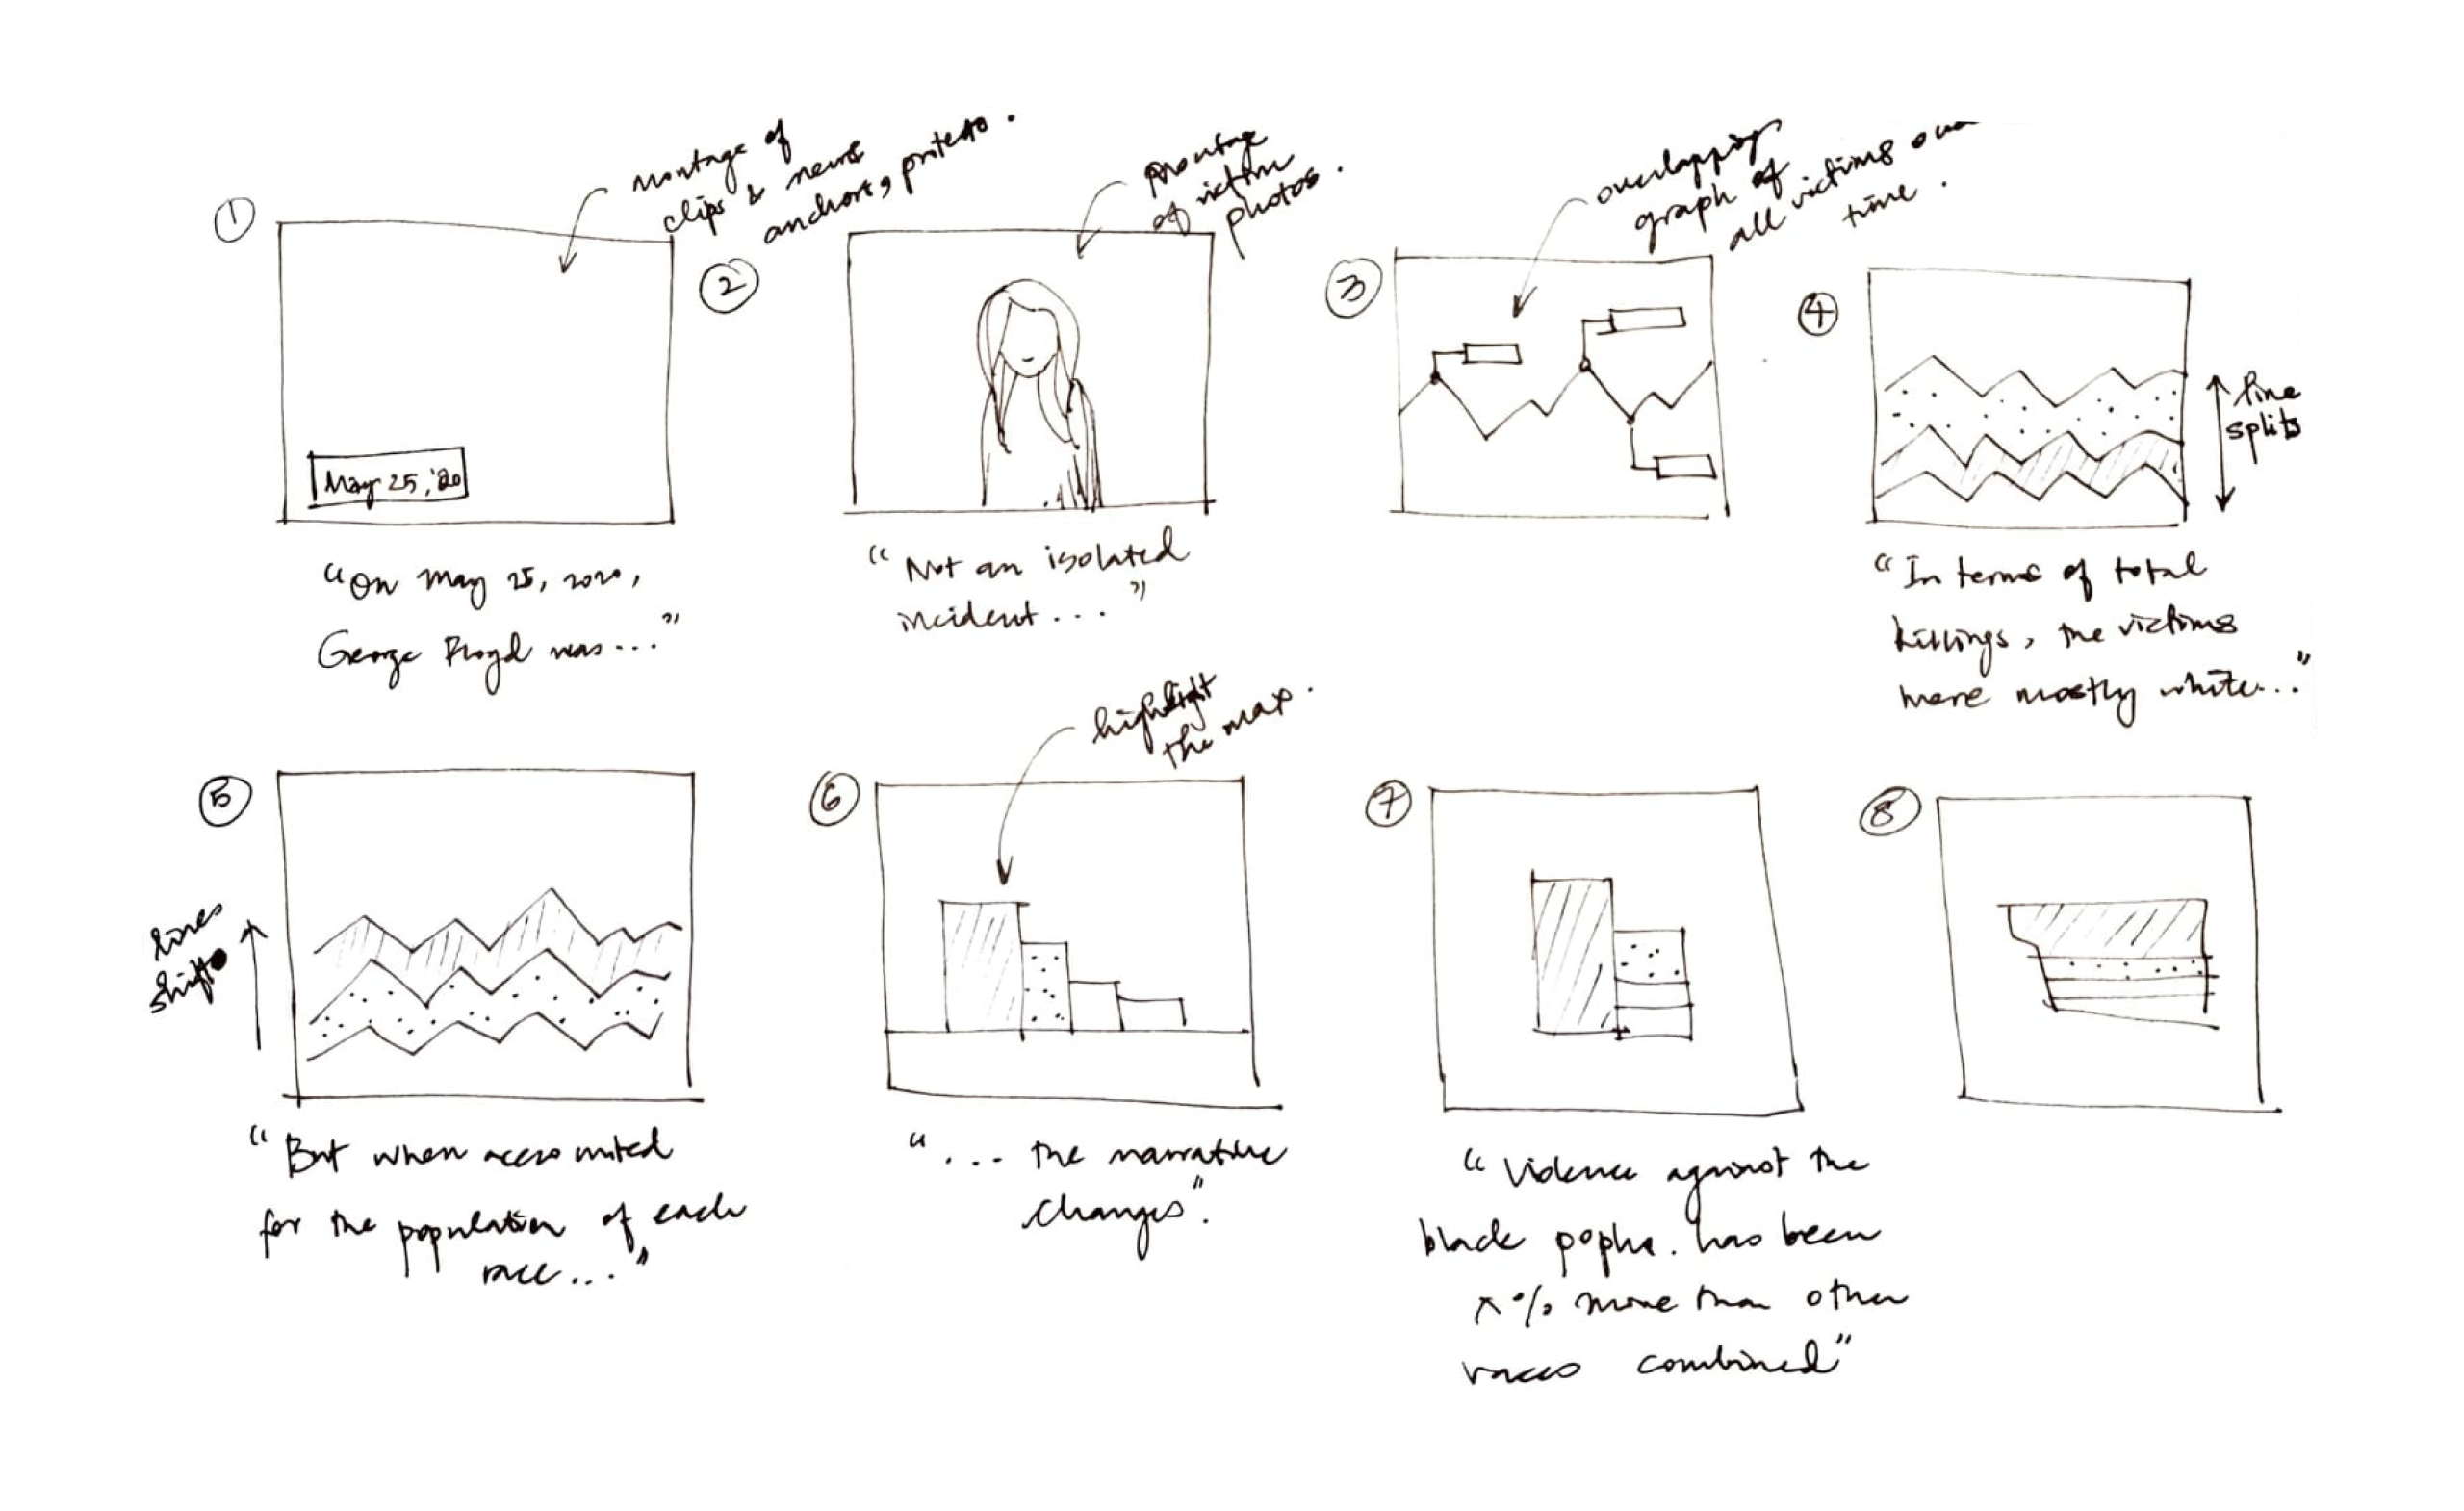 ①
montage of
clips & news
anchors, protests.
May 25, '20
"On May 25, 2020,
George Floyd was..."
②
montage
of victim
photos.
"Not an isolated
incident..."
③
overlapping
graph of
all victims over
time.
④
line
splits
"In terms of total
killings, the victims
were mostly white..."
⑤
lines
shift
"But when accounted
for the population of each
race..."
⑥
highlight
the max.
"... the narrative
changes".
⑦
"Violence against the
black popln. has been
x% more than other
races combined"
⑧